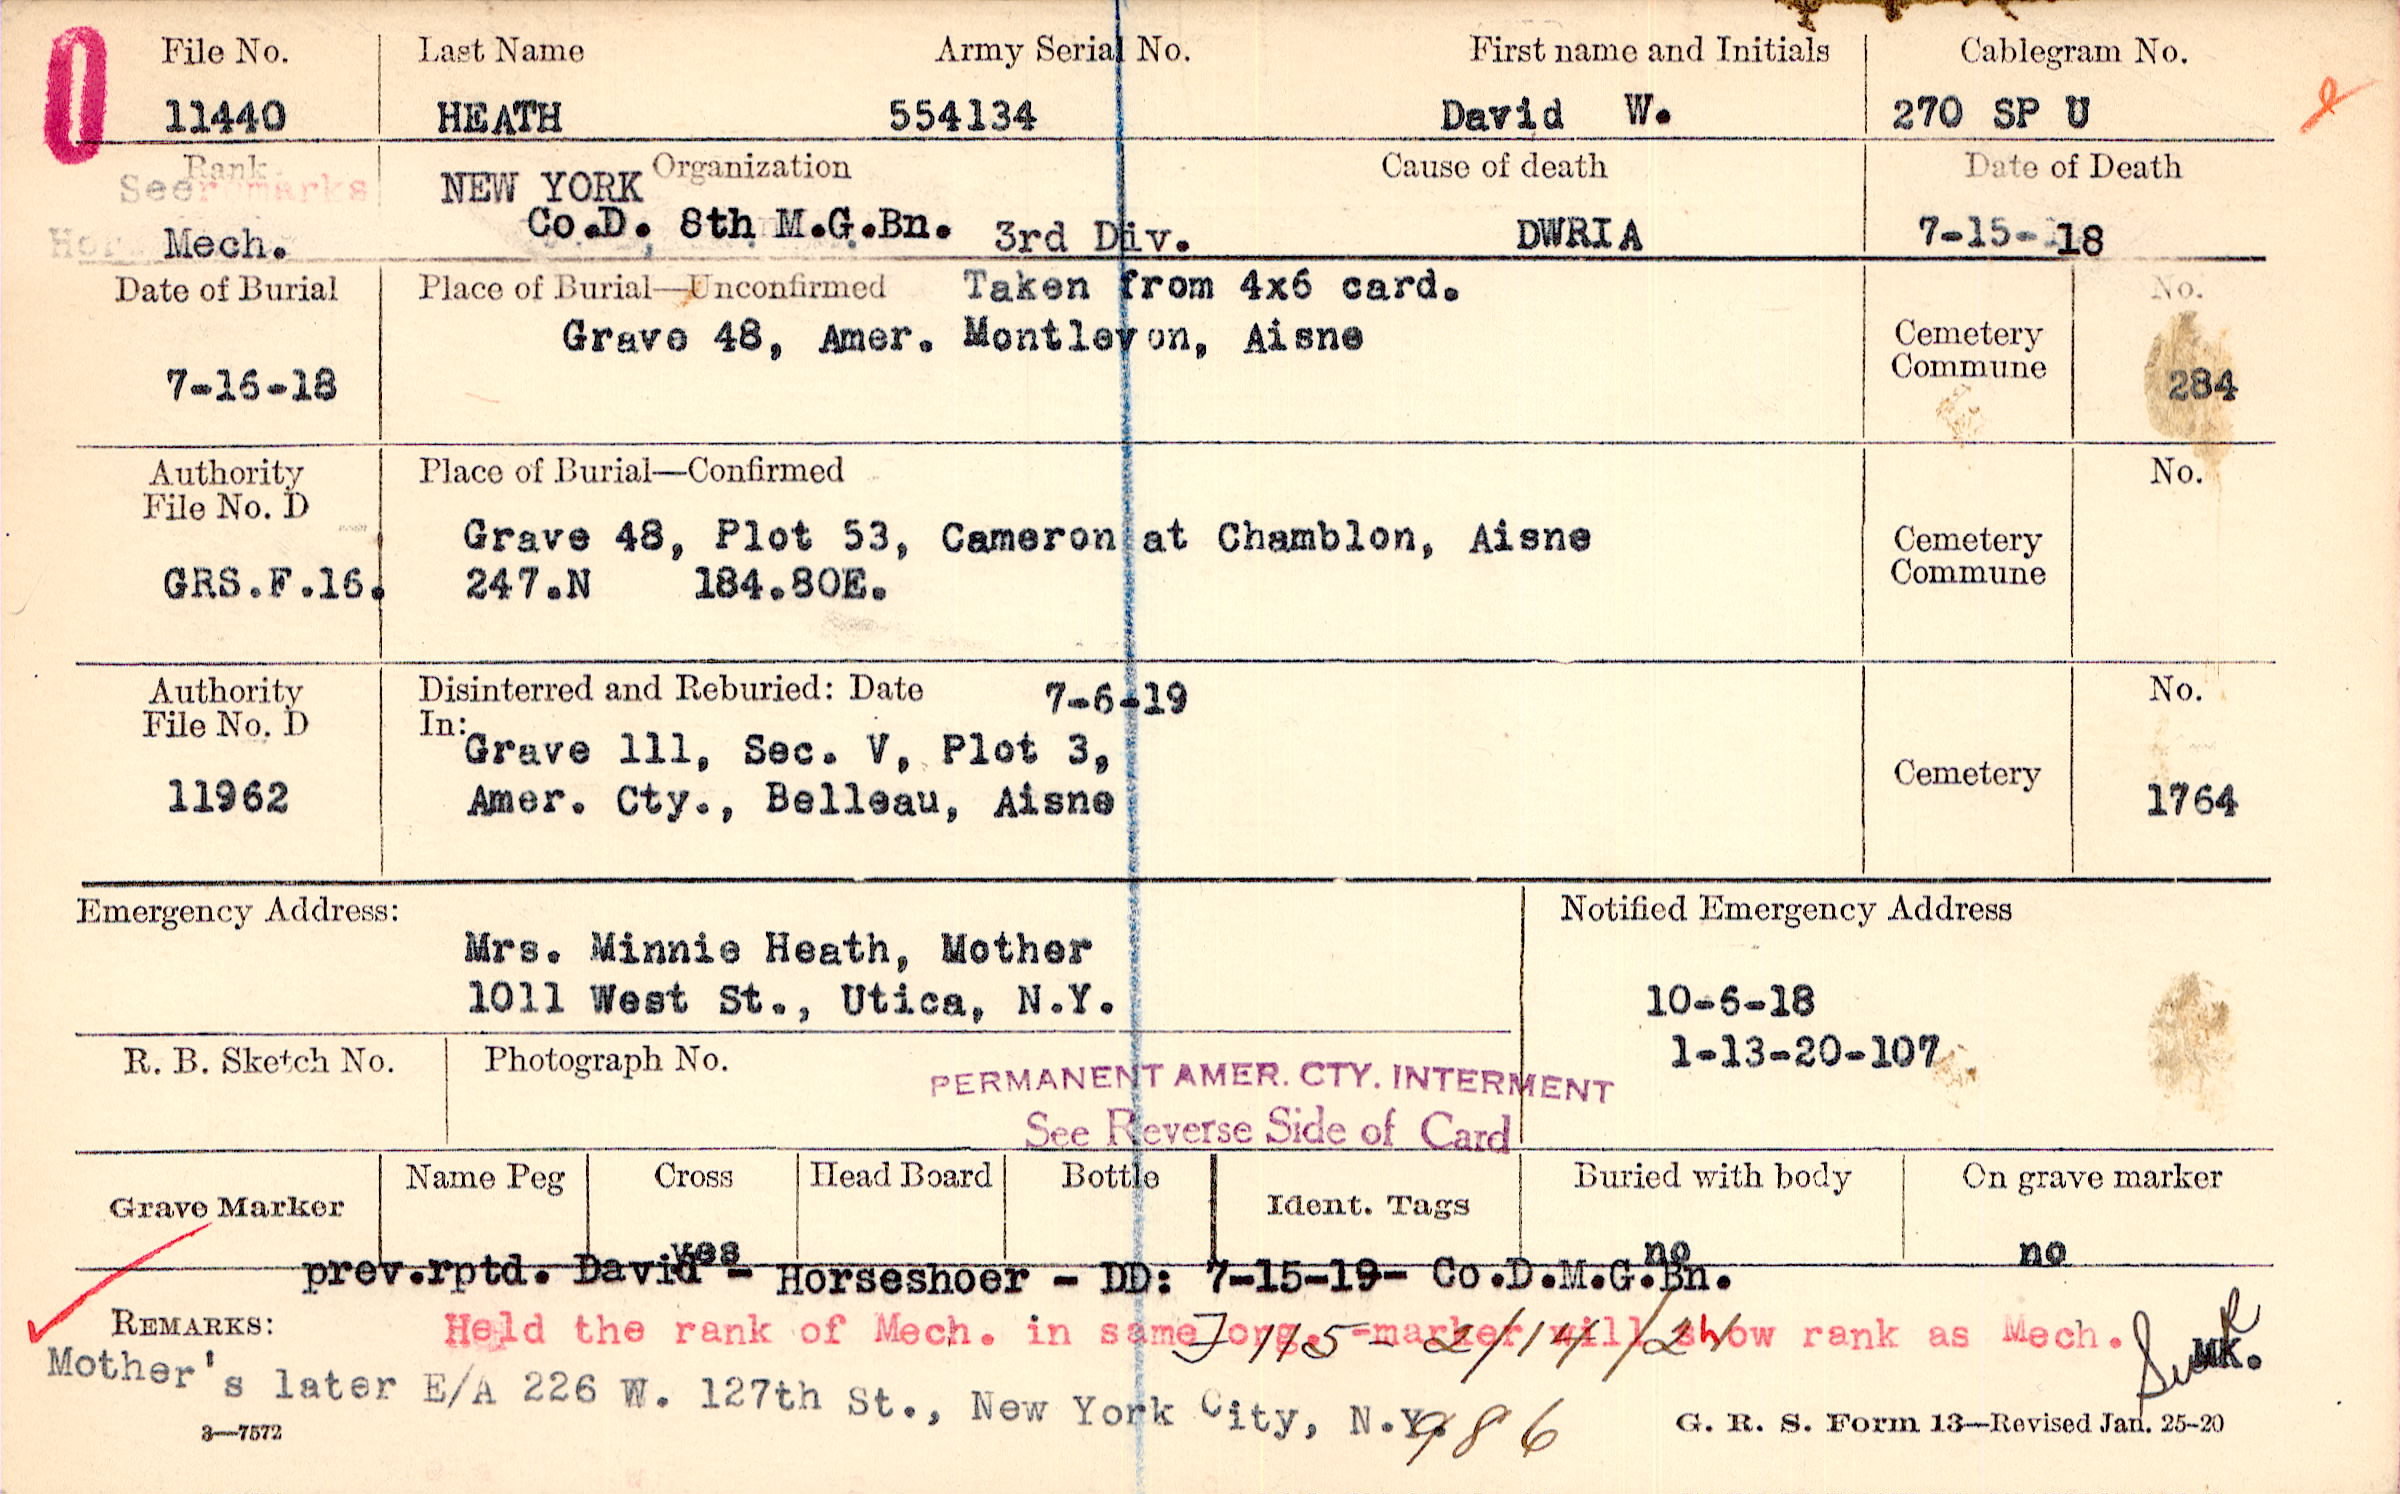 File No. Last Name Army Serial No. First name and Initials Cablegram No.
11440 HEATH 554134 David W. 270 SP U
Rank Organization Cause of death Date of Death
See remarks NEW YORK
Mech. Co.D. 8th M.G.Bn. 3rd Div. DWRIA 7-15-18
Date of Burial Place of Burial—Unconfirmed Taken from 4x6 card. No.
Grave 48, Amer. Montlevon, Aisne Cemetery
Commune
7-16-18 284
Authority Place of Burial—Confirmed No.
File No. D
Grave 48, Plot 53, Cameron at Chamblon, Aisne Cemetery
Commune
GRS.F.16. 247.N 184.80E.
Authority Disinterred and Reburied: Date 7-6-19 No.
File No. D In:
Grave 111, Sec. V, Plot 3,
Cemetery
11962 Amer. Cty., Belleau, Aisne 1764
Emergency Address: Notified Emergency Address
Mrs. Minnie Heath, Mother
1011 West St., Utica, N.Y. 10-6-18
1-13-20-107
R. B. Sketch No. Photograph No.
PERMANENT AMER. CTY. INTERMENT
See Reverse Side of Card
Name Peg Cross Head Board Bottle Buried with body On grave marker
Grave Marker Ident. Tags
yes no no
prev.rptd. David - Horseshoer - DD: 7-15-19- Co.D.M.G.Bn.
REMARKS: Held the rank of Mech. in same org. -marker will show rank as Mech. MK.
J 115 - 2/14/21
Mother's later E/A 226 W. 127th St., New York City, N.Y.
986
3—7572 G. R. S. Form 13—Revised Jan. 25-20